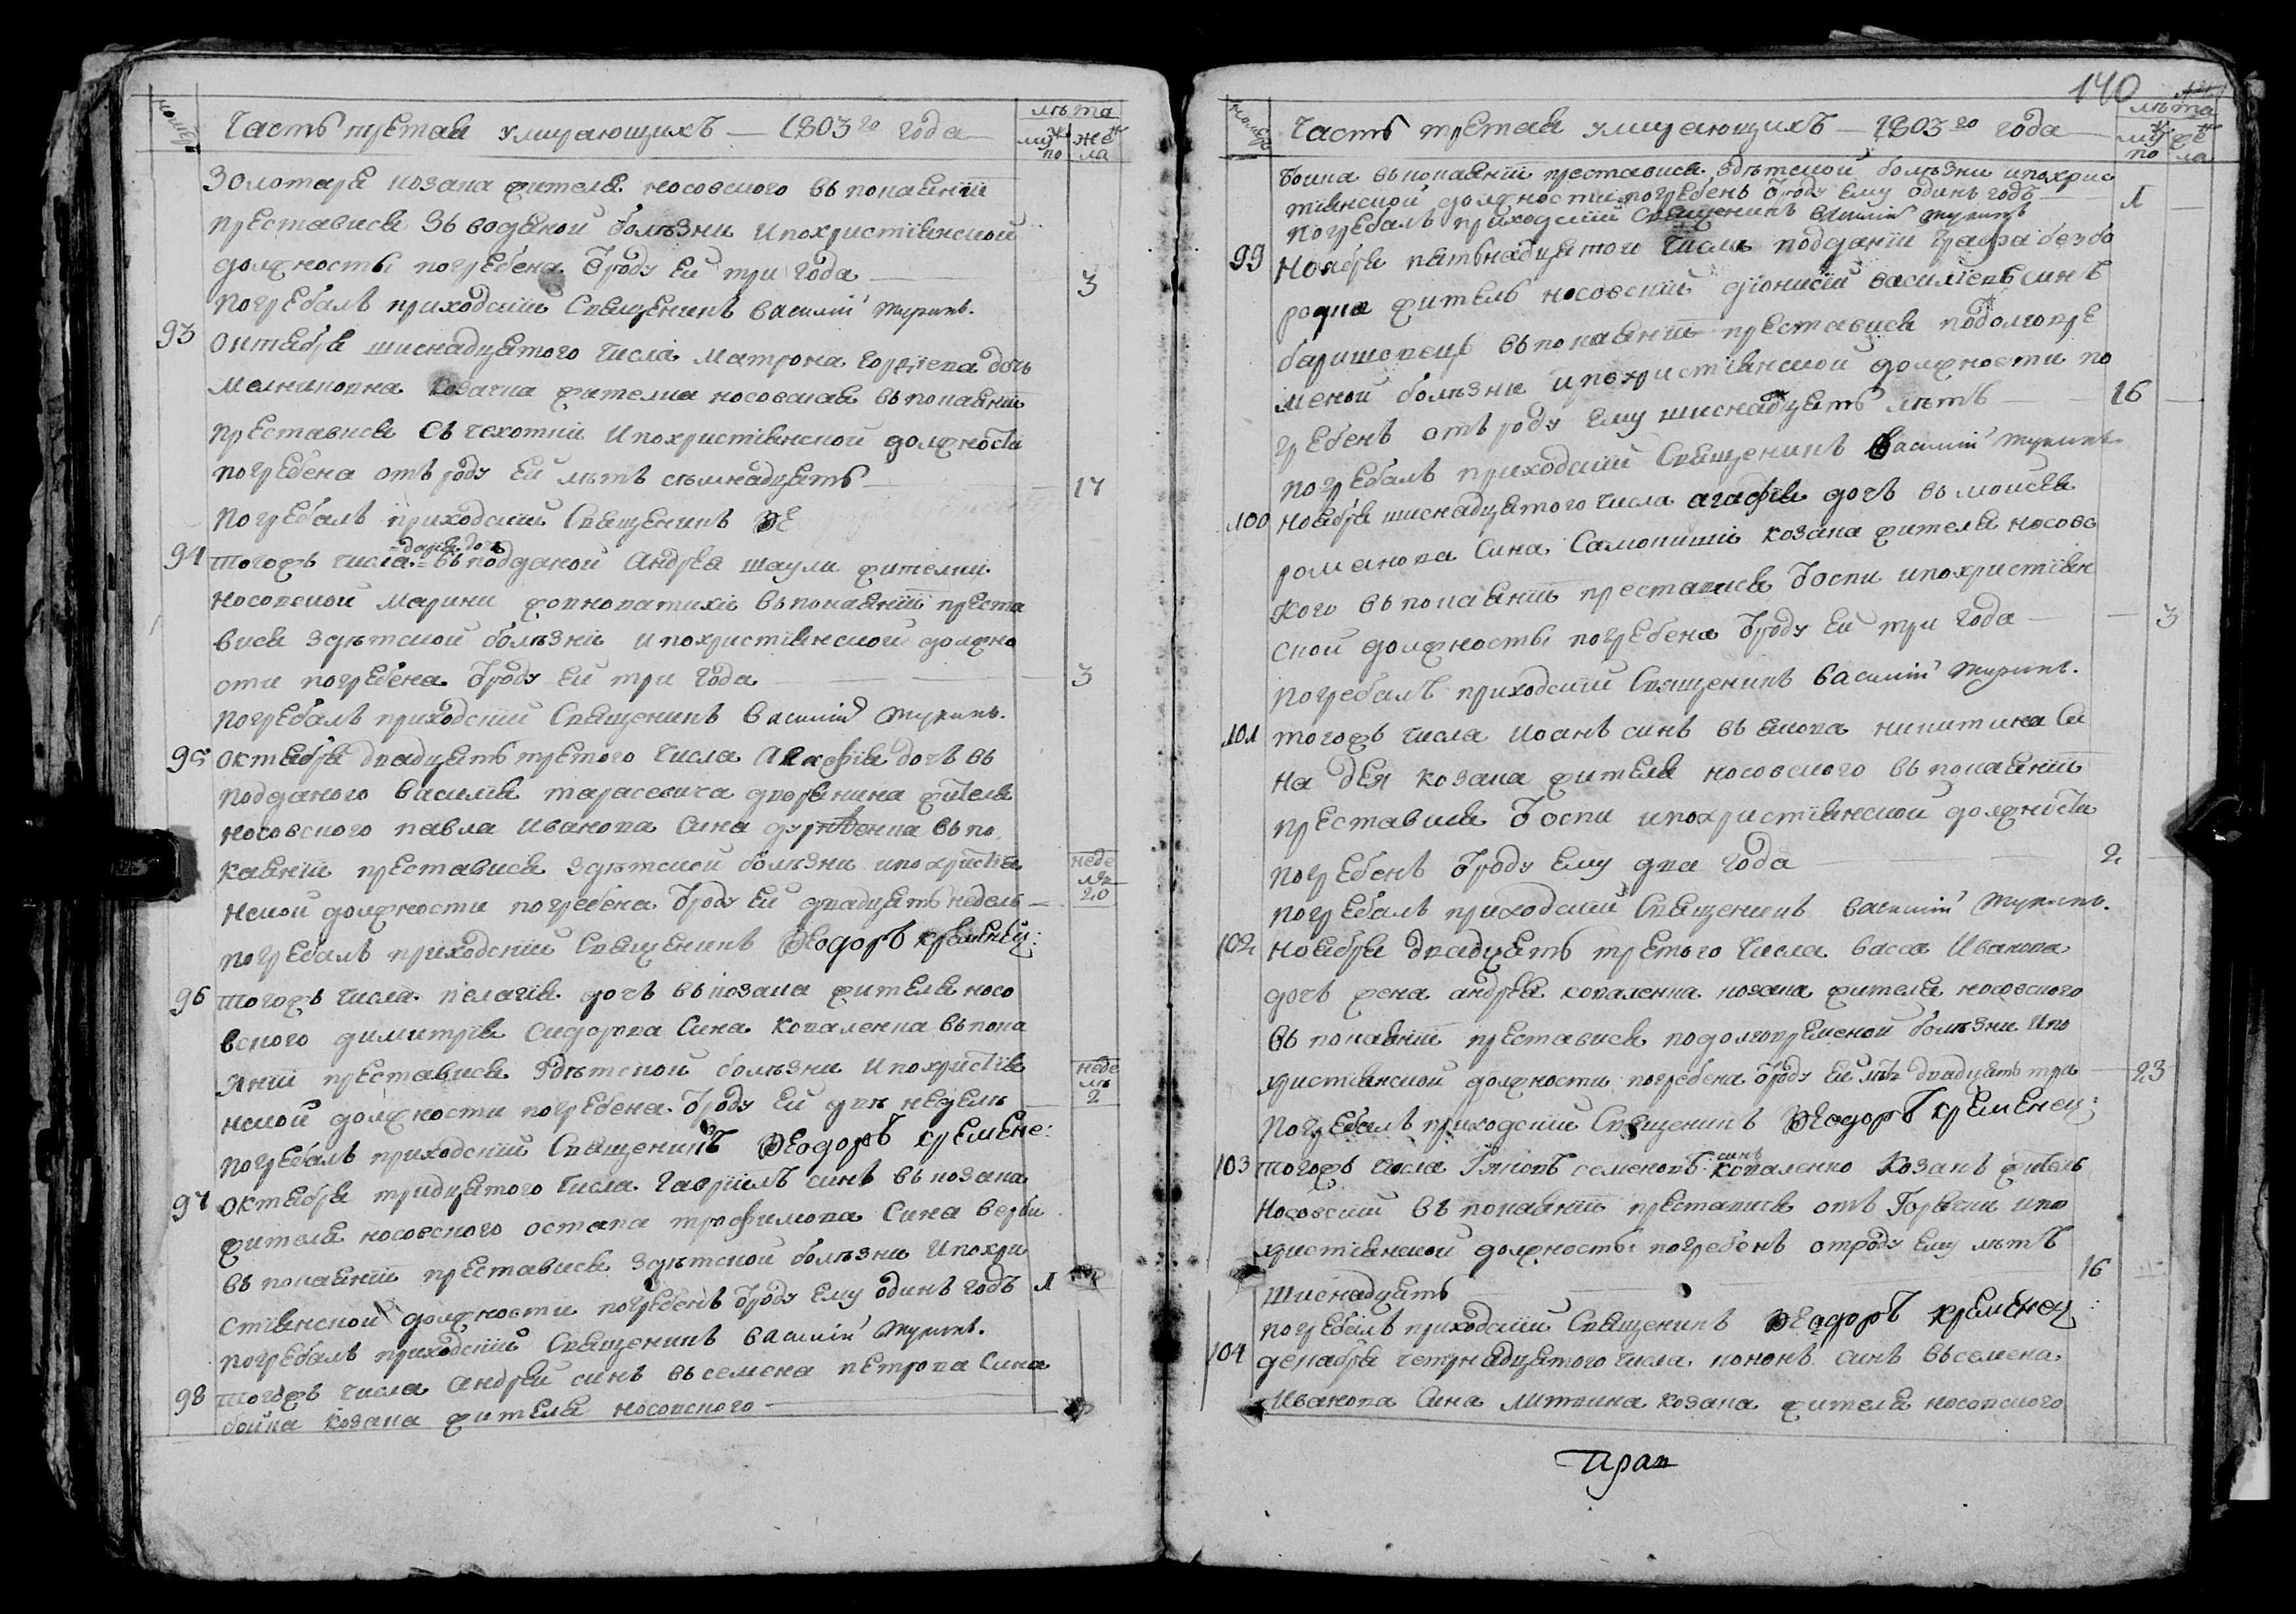 номеръ
Часть третая умирающихъ — 1803го года
лѣта
мужо по
жен ла
Золотаря козака жителя носовского въ покаянїи
преставися Зъ водяной болѣзни и похристїянской
должносты погребена ѿроду ей три года
3
погребалъ приходскїй Священикъ василїй журикъ.
93
октября шиснадцятого числа матрона гордіева дочь
мелниковна козачка жителка носовская въ покаянїи
преставися съ чехотки и похристїянской должности
погребена отъ роду ей лѣтъ съмнадцять
17
Погребалъ приходскїй Священикъ Ѳе
94
тогожъ числа дарїя дочъ въ подданой Андрѣя шаули жителки
носовской Марини жовноватихи въ покаянїи преста
вися здѣтской болѣзни и похристїянской должно
сти погребена ѿроду ей три года
3
погребалъ приходскїй Священикъ василїй журикъ.
95
октября двадцять третого числа Агафїя дочъ въ
подданого василїя тарасевича дворянина жителя
носовского павла Иванова сина въ по
каянїи преставися здѣтской болѣзни и похристїя
нской должности погребена ѿроду ей двадцять недель
неде ль 20
погребалъ приходскїй Священикъ Ѳеодоръ кременец:
96
тогожъ числа пелагїя дочъ въ козака жителя носо
вского димитрїя сидорова сина коваленка въ пока
янїи преставися здѣтской болѣзни и похристїя
нской должности погребена ѿроду ей двѣ неделѣ
неде лѣ 2
погребалъ приходскїй Священикъ Ѳеодоръ кремене:
97
октября тридцятого числа гаврїилъ синъ въ козака
жителя носовского остапа трофимова сина верби
въ покаянїи преставися здѣтской болѣзни и похри
стїянской должности погребенъ ѿроду ему одинъ годъ
1
погребалъ приходскїй Священикъ василїй журикъ.
98
тогожъ числа андрѣй синъ въ семена петрова сина
бойка козака жителя носовского
140
номеръ
Часть третая умирающихъ — 1803го года
лѣта
мужо по
же ла
бойка въ покаянїи преставися здѣтской болѣзни и похрис
тїянской должности погребенъ ѿроду ему одинъ годъ
1
погребалъ приходскїй Священикъ василїй журикъ
99
Ноября пятьнадцятого числа подданїй графа безбо
родка житель носовскїй дїонисїй василїевъ синъ
баришовець въ покаянїи преставися подолговре
меной болѣзни и похристїянской должности по
гребенъ отъ роду ему шиснадцять лѣтъ
16
погребалъ приходскїй Священикъ василїй журикъ
100
ноября шиснадцятого числа агафїя дочъ въ моисея
романова сина Самокишы козака жителя носовс
кого въ покаянїи преставися ѿ оспи и похристїян
ской должносты погребена ѿроду ей три года
3
погребалъ приходскїй Священикъ василїй журикъ.
101
тогожъ числа иоанъ синъ въ якова никитина си
на дея козака жителя носовского въ покаянїи
преставися ѿ оспи и похристїянской должности
погребенъ ѿроду ему два года
2
погребалъ приходскїй Священикъ василїй журикъ.
102
ноября двадцять третого числа васса Иванова
дочъ жена андрѣя коваленка козака жителя носовского
въ покаянїи преставися подолговременой болѣзни и по
христїянской должности погребена ѿроду ей лѣтъ двадцять три
23
Погребалъ приходскїй Священикъ Ѳеодоръ кременец:
103
тогожъ числа семеновъ синъ коваленко козакъ житель
носовскїй въ покаянїи преставися отъ горячки и по
христїянской должносты погребенъ отроду ему лѣтъ
шиснадцять
16
погребалъ приходскїй Священикъ Ѳеодоръ кременец:
104
декабря четирнадцятого числа кононъ синъ въ семена
Иванова сина литвина козака жителя носовского